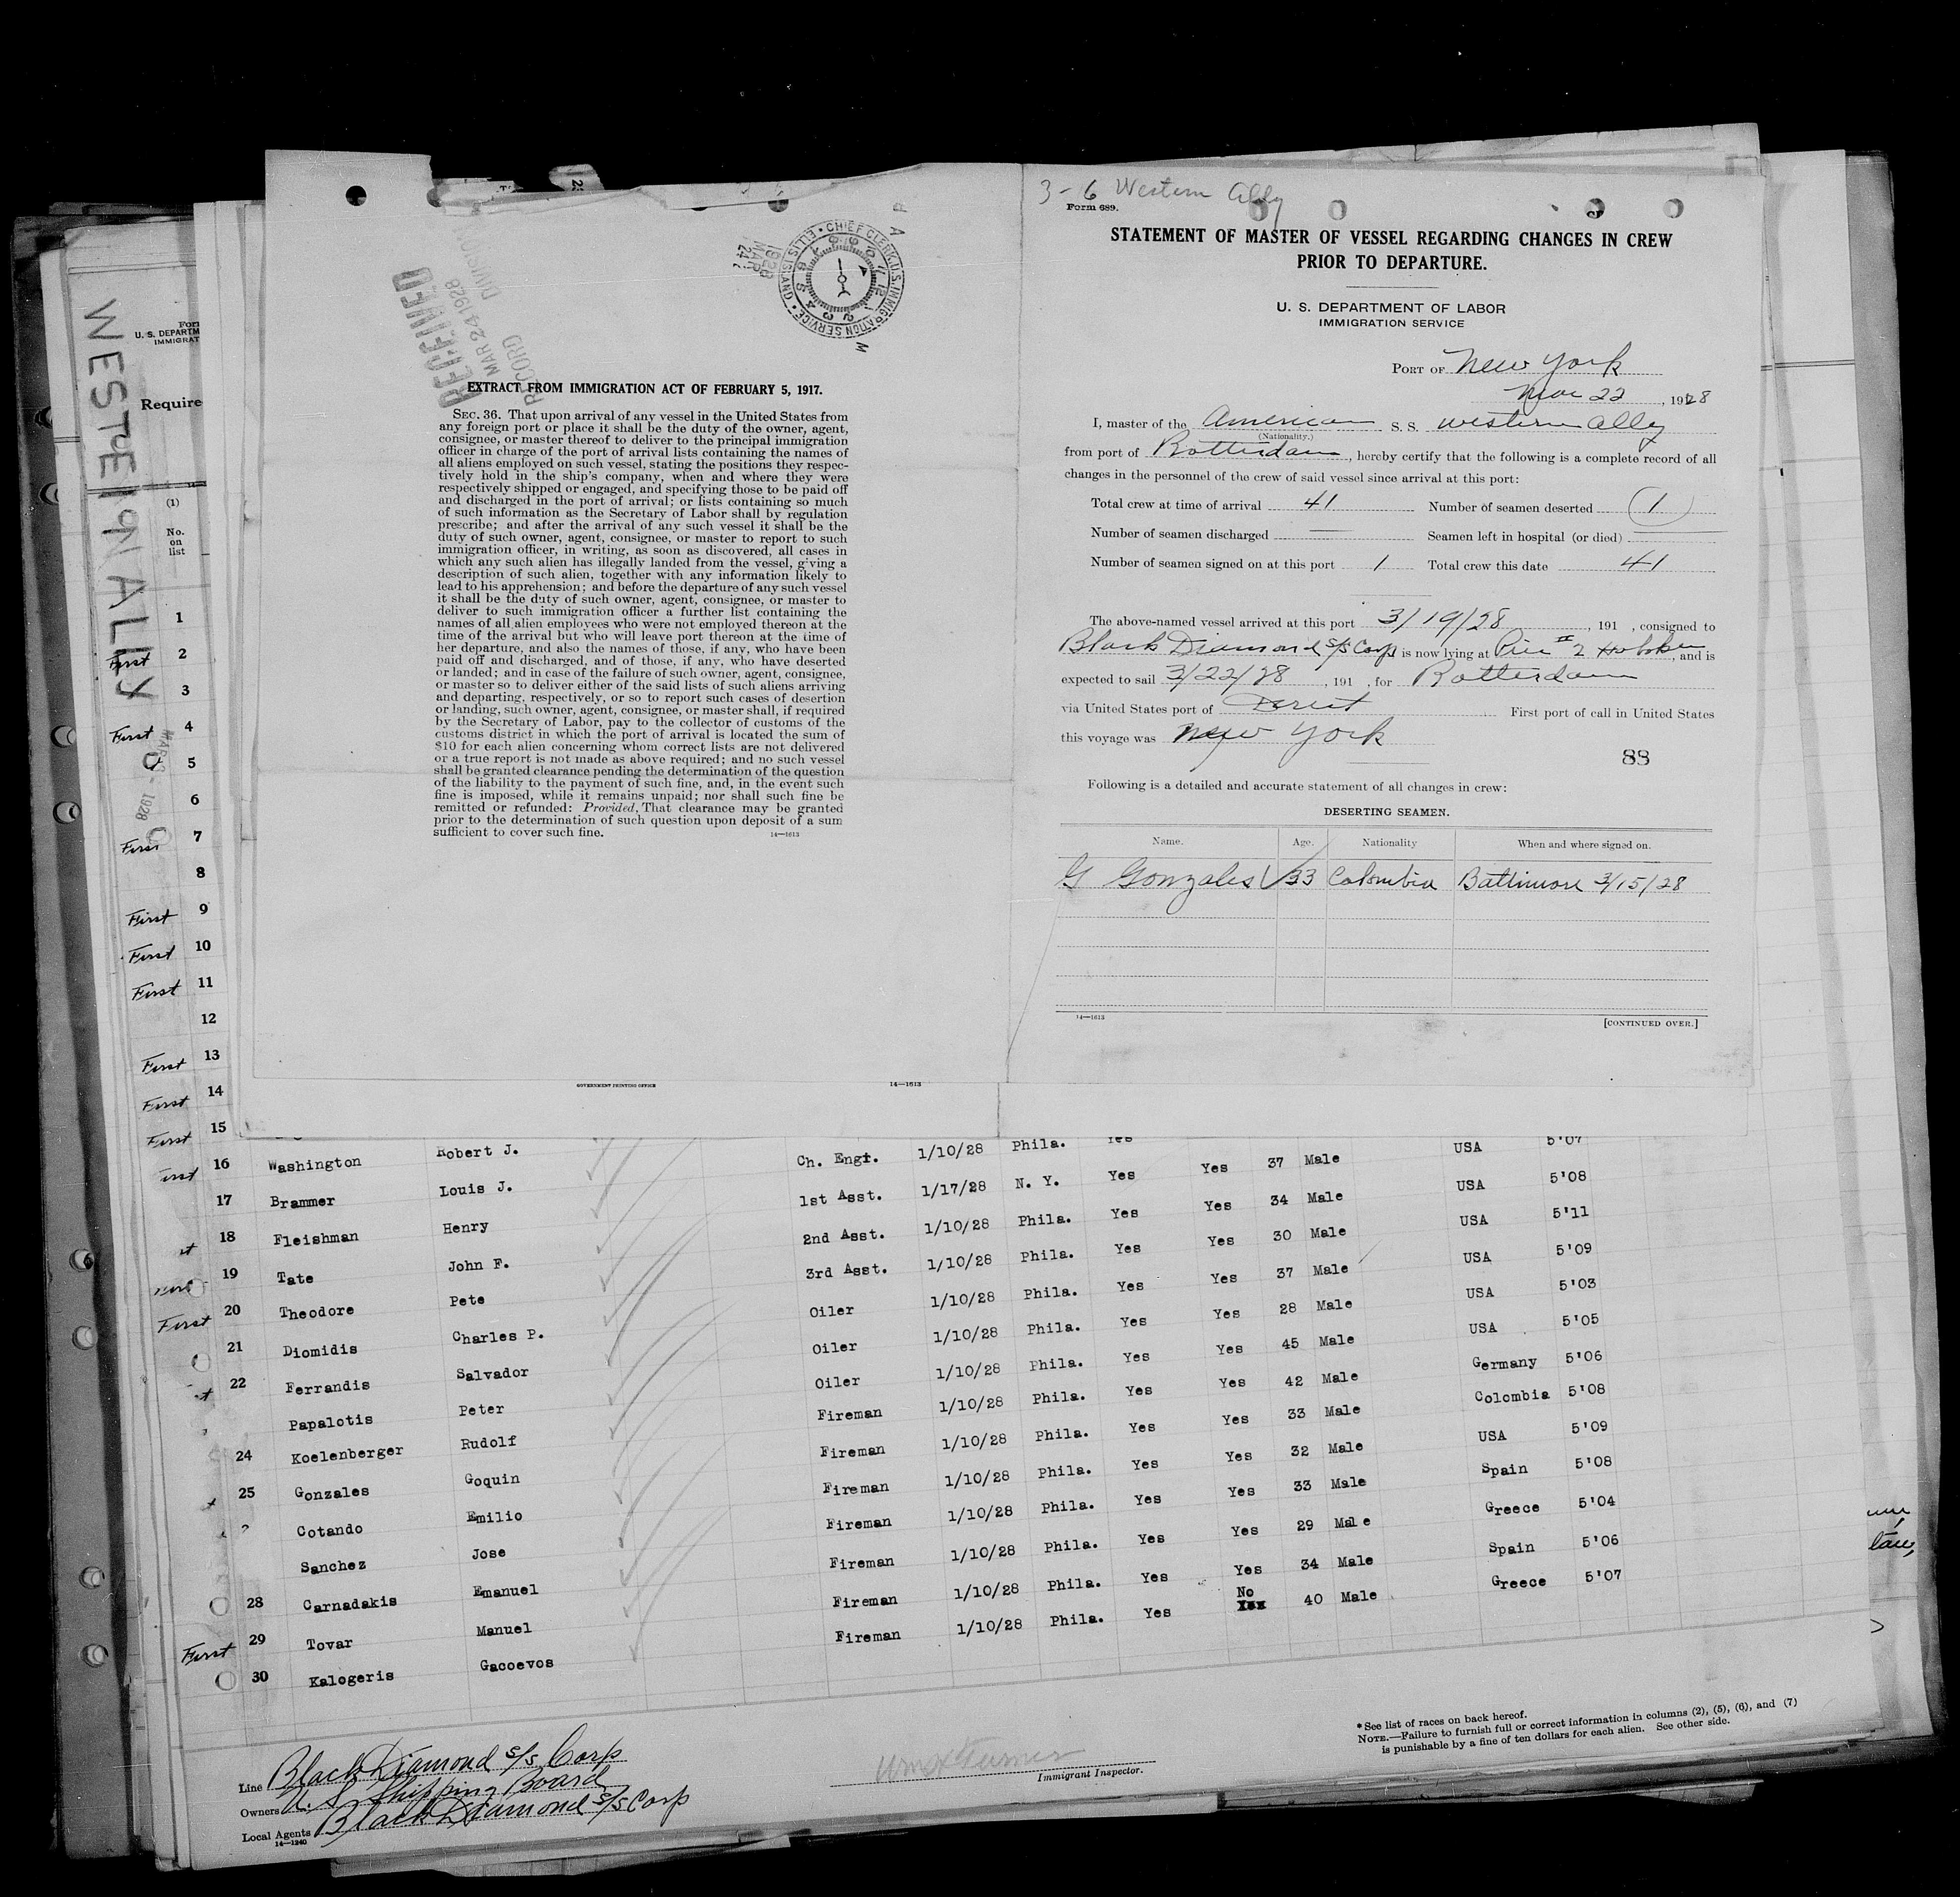 WESTERN ALLY
Form
U. S. DEPARTM
IMMIGRAT
Require
(1)
No.
on
list
RECEIVED
MAR 24 1928
RECORD DIVISION
1928
MAR
24
CHIEF CLERK, U.S. IMMIGRATION SERVICE • ELLIS ISLAND •
EXTRACT FROM IMMIGRATION ACT OF FEBRUARY 5, 1917.
SEC. 36. That upon arrival of any vessel in the United States from
any foreign port or place it shall be the duty of the owner, agent,
consignee, or master thereof to deliver to the principal immigration
officer in charge of the port of arrival lists containing the names of
all aliens employed on such vessel, stating the positions they respec-
tively hold in the ship's company, when and where they were
respectively shipped or engaged, and specifying those to be paid off
and discharged in the port of arrival; or lists containing so much
of such information as the Secretary of Labor shall by regulation
prescribe; and after the arrival of any such vessel it shall be the
duty of such owner, agent, consignee, or master to report to such
immigration officer, in writing, as soon as discovered, all cases in
which any such alien has illegally landed from the vessel, giving a
description of such alien, together with any information likely to
lead to his apprehension; and before the departure of any such vessel
it shall be the duty of such owner, agent, consignee, or master to
deliver to such immigration officer a further list containing the
names of all alien employees who were not employed thereon at the
time of the arrival but who will leave port thereon at the time of
her departure, and also the names of those, if any, who have been
paid off and discharged, and of those, if any, who have deserted
or landed; and in case of the failure of such owner, agent, consignee,
or master so to deliver either of the said lists of such aliens arriving
and departing, respectively, or so to report such cases of desertion
or landing, such owner, agent, consignee, or master shall, if required
by the Secretary of Labor, pay to the collector of customs of the
customs district in which the port of arrival is located the sum of
$10 for each alien concerning whom correct lists are not delivered
or a true report is not made as above required; and no such vessel
shall be granted clearance pending the determination of the question
of the liability to the payment of such fine, and, in the event such
fine is imposed, while it remains unpaid; nor shall such fine be
remitted or refunded: Provided, That clearance may be granted
prior to the determination of such question upon deposit of a sum
sufficient to cover such fine.
14—1613
GOVERNMENT PRINTING OFFICE
14—1613
3-6 Western Ally
Form 689.
STATEMENT OF MASTER OF VESSEL REGARDING CHANGES IN CREW
PRIOR TO DEPARTURE.
U. S. DEPARTMENT OF LABOR
IMMIGRATION SERVICE
PORT OF New York
Mar 22, 1928
I, master of the American S. S. Western Ally
(Nationality.)
from port of Rotterdam, hereby certify that the following is a complete record of all
changes in the personnel of the crew of said vessel since arrival at this port:
Total crew at time of arrival 41 Number of seamen deserted 1
Number of seamen discharged — Seamen left in hospital (or died) —
Number of seamen signed on at this port 1 Total crew this date 41
The above-named vessel arrived at this port 3/19/28, 191 , consigned to
Black Diamond S/S Corp is now lying at Pier # 2 Hoboken, and is
expected to sail 3/22/28, 191 , for Rotterdam
via United States port of Direct First port of call in United States
this voyage was New York
88
Following is a detailed and accurate statement of all changes in crew:
DESERTING SEAMEN.
Name. Age. Nationality When and where signed on.
G Gonzales 33 Colombia Baltimore 3/15/28
14—1613
[CONTINUED OVER.]
1
First 2
3
First 4
5
6
First 7
8
First 9
First 10
First 11
12
First 13
First 14
First 15
First 16 Washington Robert J. Ch. Engr. 1/10/28 Phila. Yes Yes 37 Male USA 5'07
17 Brammer Louis J. 1st Asst. 1/17/28 N. Y. Yes Yes 34 Male USA 5'08
18 Fleishman Henry 2nd Asst. 1/10/28 Phila. Yes Yes 30 Male USA 5'11
19 Tate John F. 3rd Asst. 1/10/28 Phila. Yes Yes 37 Male USA 5'09
First 20 Theodore Pete Oiler 1/10/28 Phila. Yes Yes 28 Male USA 5'03
21 Diomidis Charles P. Oiler 1/10/28 Phila. Yes Yes 45 Male USA 5'05
22 Ferrandis Salvador Oiler 1/10/28 Phila. Yes Yes 42 Male Germany 5'06
Papalotis Peter Fireman 1/10/28 Phila. Yes Yes 33 Male Colombia 5'08
24 Koelenberger Rudolf Fireman 1/10/28 Phila. Yes Yes 32 Male USA 5'09
25 Gonzales Goquin Fireman 1/10/28 Phila. Yes Yes 33 Male Spain 5'08
Cotando Emilio Fireman 1/10/28 Phila. Yes Yes 29 Male Greece 5'04
Sanchez Jose Fireman 1/10/28 Phila. Yes Yes 34 Male Spain 5'06
28 Carnadakis Emanuel Fireman 1/10/28 Phila. Yes No 40 Male Greece 5'07
29 Tovar Manuel Fireman 1/10/28 Phila. Yes
First 30 Kalogeris Gacoevos
Line Black Diamond S/S Corp
Owners U. S. Shipping Board
Local Agents Black Diamond S/S Corp
14—1240
Immigrant Inspector.
* See list of races on back hereof.
NOTE.—Failure to furnish full or correct information in columns (2), (5), (6), and (7)
is punishable by a fine of ten dollars for each alien. See other side.